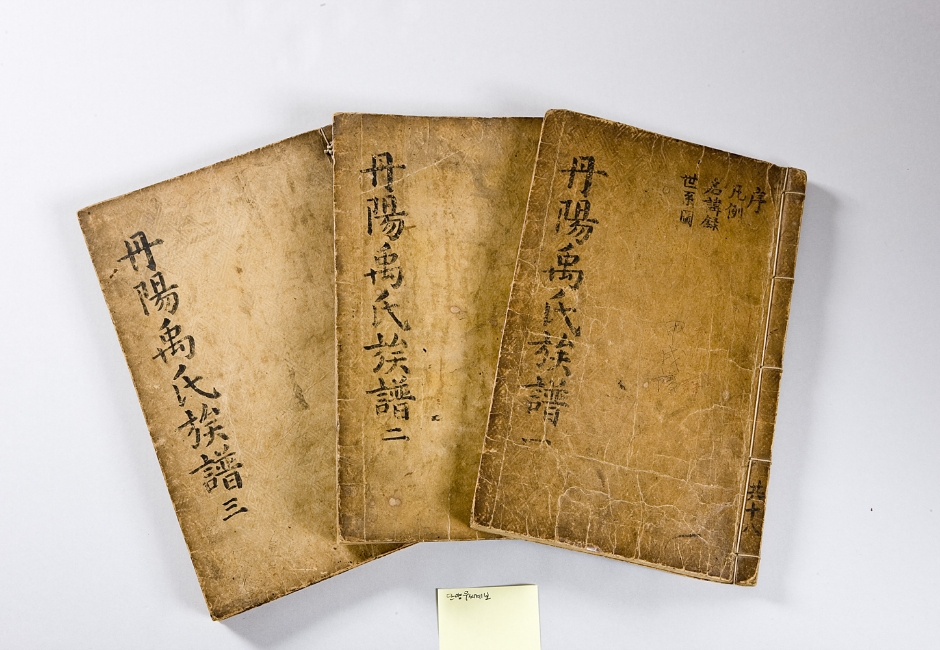 丹陽禹氏族譜 三
丹陽禹氏族譜 二
丹陽禹氏族譜 一
序
凡例
名諱錄
世系圖
共十八
단양우씨세보